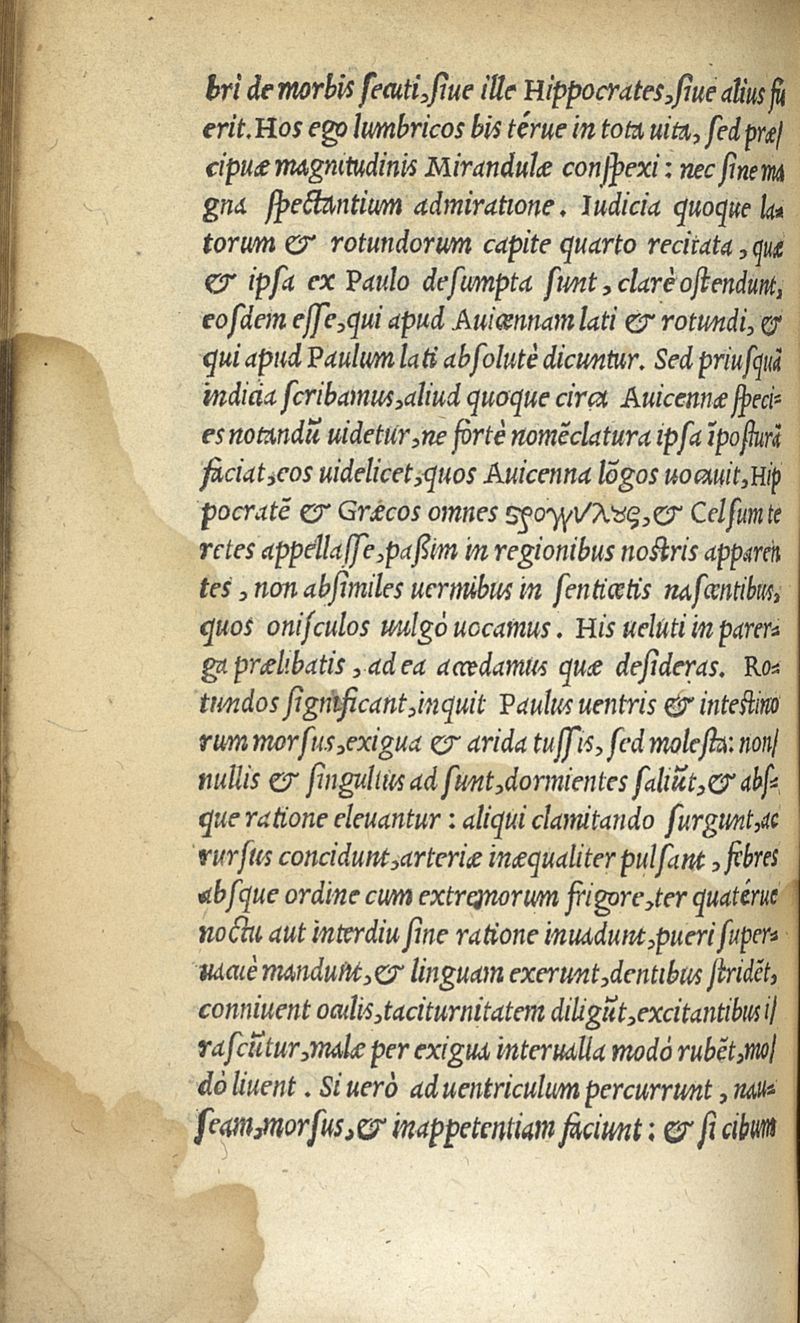 bri de morbis ſecuti, ſiue ille Hippocrates, ſiue alius fu
erit. Hos ego lumbricos bis térue in tota uita, ſed præ/
cipuæ magnitudinis Mirandulæ conſpexi : nec ſine ma
gna ſpectantium admiratione. Iudicia quoque la-
torum & rotundorum capite quarto recitata, quæ
& ipſa ex Paulo deſumpta ſunt, clarè oſtendunt,
eoſdem eſſe, qui apud Auicennam lati & rotundi, &
qui apud Paulum lati abſolutè dicuntur. Sed priuſquā
indicia ſcribamus, aliud quoque circa Auicennæ ſpeci-
es notandū uidetur, ne fortè nomēclatura ipſa īpoſturā
faciat, eos uidelicet, quos Auicenna lōgos uocauit, Hip
pocratē & Græcos omnes ϛρογγύλȣς, & Celſum te
retes appellaſſe, paßim in regionibus noſtris apparen
tes, non abſimiles uermibus in ſenticetis naſcentibus,
quos oniſculos uulgò uocamus. His ueluti in parer-
ga prælibatis, ad ea accedamus quæ deſideras. Ro-
tundos ſignificant, inquit Paulus uentris & inteſtino
rum morſus, exigua & arida tuſſis, ſed moleſta: non/
nullis & ſingultus ad ſunt, dormientes ſaliūt, & abſ-
que ratione eleuantur : aliqui clamitando ſurgunt, ac
rurſus concidunt, arteriæ inæqualiter pulſant, febres
abſque ordine cum extremorum frigore, ter quatérue
noctu aut interdiu ſine ratione inuadunt, pueri ſuper-
uacuè mandunt, & linguam exerunt, dentibus ſtridēt,
conniuent oculis, taciturnitatem diligūt, excitantibus i/
raſcūtur, malæ per exigua interualla modò rubēt, mo/
dò liuent. Si uerò ad uentriculum percurrunt, nau-
ſeam, morſus, & inappetentiam faciunt : & ſi cibum